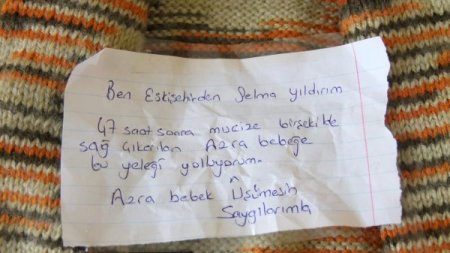 Ben Eskişehirden Selma yıldırım
47 saat sonra mucize bir şekilde
sağ çıkarılan Azra bebeğe
bu yeleği yolluyorum.
Azra bebek Üşümesin
Saygılarımla